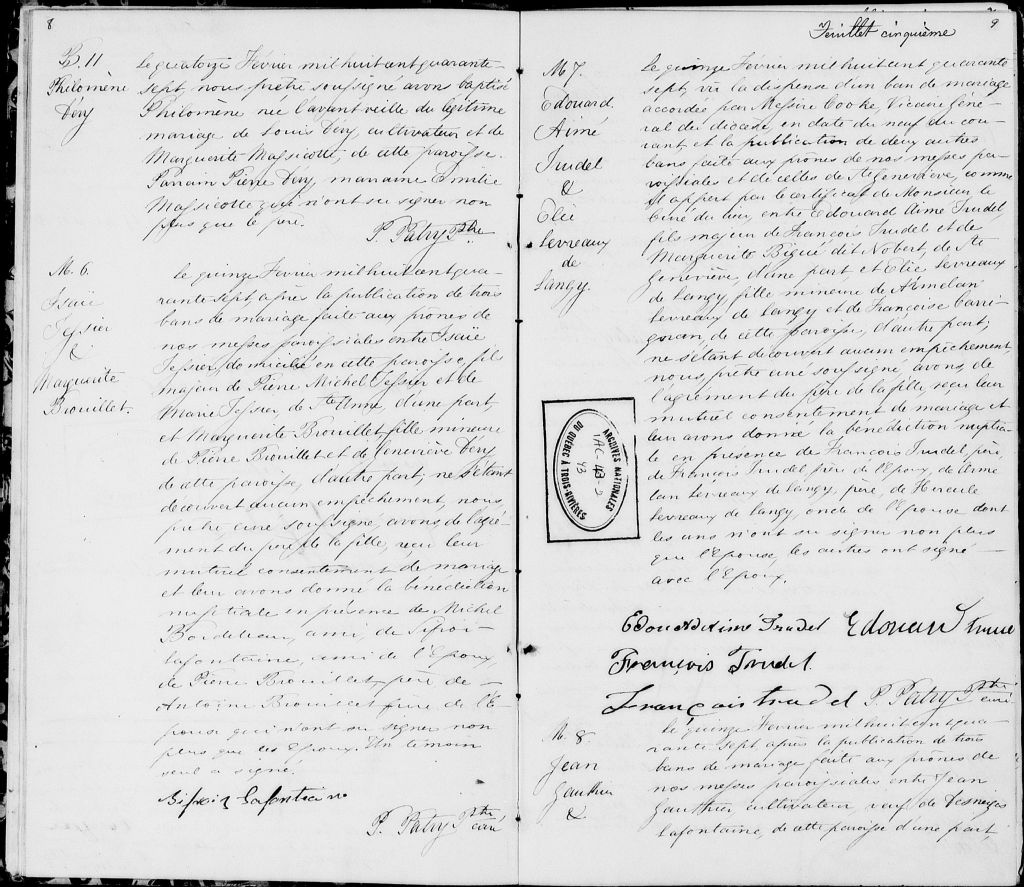 8
B. 11
Philomène
Déry
Le quatorze Février mil huit cent quarante-
sept, nous prêtre soussigné avons baptisé
Philomène née l'avant veille du légitime
mariage de Louis Déry, cultivateur et de
Marguerite Massicotte, de cette paroisse.
Parrain Pierre Déry, marraine Emilie
Massicotte qui n'ont su signer non
plus que le père.
P. Patry Ptre
M. 6.
Isaïe
Tessier
&
Marguerite
Brouillet.
Le quinze Fevrier mil huit cent qua-
rante sept après la publication de trois
bans de mariage faite aux prônes de
nos messes paroissiales entre Isaïe
Tessier, domicilié en cette paroisse, fils
majeur de Pierre Michel Tessier et de
Marie Tessier, de Ste Anne, d'une part,
et Marguerite Brouillet fille mineure
de Pierre Brouillet et de Geneviève Déry
de cette paroisse, d'autre part; ne s'étant
découvert aucun empêchement, nous,
prêtre, curé soussigné, avons de l'agré-
ment du père de la fille, reçu leur
mutuel consentement de mariage
et leur avons donné la bénédiction
nuptiale en présence de Michel
Bordeleau, ami, de
Lafontaine, ami de l'Epoux,
de Pierre Brouillet, père de
Antoine Brouillet frère, de l'E-
pouse qui n'ont su signer non
plus que les Epoux. Un témoin
seul a signé.
Lafontain
P. Patry Ptre
curé
Feuillet cinquième
9
M 7.
Edouard
Aimé
Trudel
&
Elie
Levreaux
de
Langy.
Le quinze Février mil huit cent quarante
sept, vu la dispense d'un ban de mariage
accordée par Messire Cooke, Vicaire Géné-
ral du diocèse, en date du neuf du cou-
rant et la publication de deux autres
bans faite aux prônes de nos messes pa-
roissiales et de celles de Ste Geneviève, comme
il appert par le certificat de Monsieur le
Curé du lieu, entre Edouard Aimé Trudel
fils majeur de François Trudel et de
Marguerite Bigué dit Nobert, de Ste
Geneviève, d'une part et Elie Levreaux
de Langy, fille mineure de
Levreaux de Langy et de Françoise
de cette paroisse, d'autre part;
ne s'étant découvert aucun empêchement,
nous, prêtre curé soussigné, avons, de
l'agrément du père de la fille, reçu leur
mutuel consentement de mariage et
leur avons donné la bénédiction nuptia-
le en présence de François Trudel, père,
de François Trudel frère de l'Epoux, de
Levreaux de Langy, père, de Hercule
Levreaux de Langy, oncle de l'Epouse dont
les uns n'ont su signer non plus
que l'Epouse, les autres ont signé
avec l'Epoux.
ARCHIVES NATIONALES
DU QUÉBEC À TROIS-RIVIÈRES
43
Edouard Aimé Trudel Edouard
François Trudel
François trudel P. Patry Ptre
curé
M. 8.
Jean
Gauthier
&
Le quinze Février mil huit cent qua-
rante sept après la publication de trois
bans de mariage faite aux prônes de
nos messes paroissiales entre Jean
Gauthier cultivateur, veuf de Desneiges
Lafontaine, de cette paroisse d'une part,